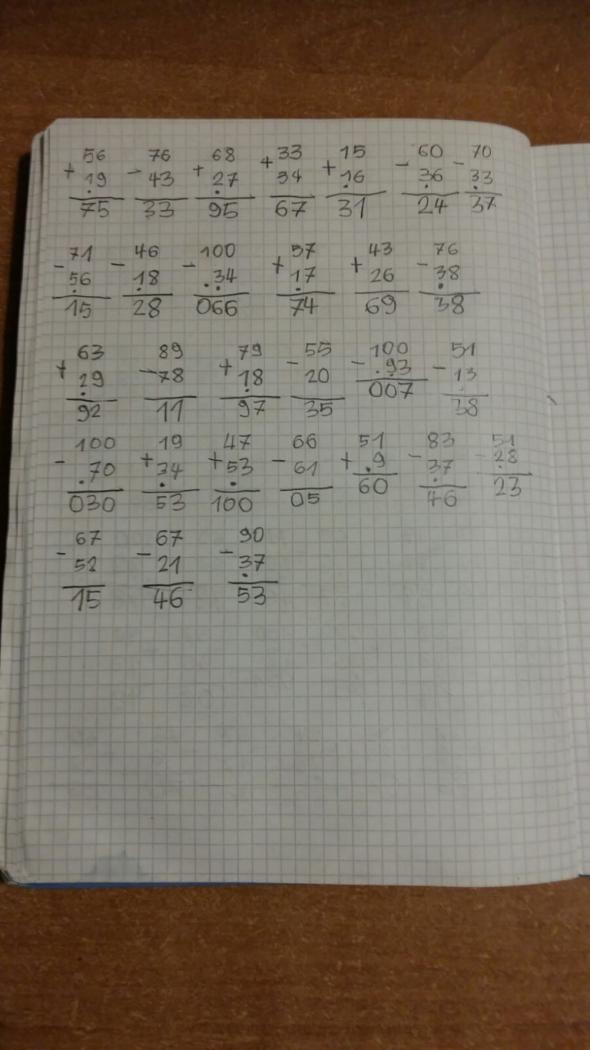 56 76 68 33 15 60 70
+ 19 - 43 + 27 + 34 + 16 - 36 - 33
75 33 95 67 31 24 37
71 46 100 57 43 76
- 56 - 18 - 34 + 17 + 26 - 38
15 28 066 74 69 38
63 89 79 55 100 51
+ 29 - 78 + 18 - 20 - 93 - 13
92 11 97 35 007 38
100 19 47 66 51 83 51
- 70 + 34 + 53 - 61 + 9 - 37 - 28
030 53 100 05 60 46 23
67 67 90
- 52 - 21 - 37
15 46 53